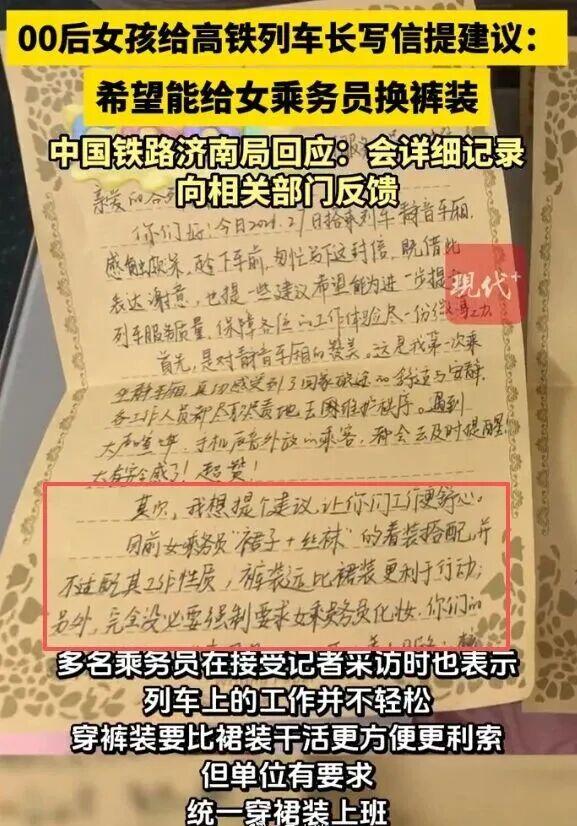 00后女孩给高铁列车长写信提建议：
希望能给女乘务员换裤装
中国铁路济南局回应：会详细记录
向相关部门反馈
亲爱的
你们好，今日2026.2.7日搭乘列车静音车厢，
下车前，匆忙写下这封信，既借此
表达谢意，也提一些建议希望能为进一步提
列车服务质量，保障各位的工作体验尽一份微薄之力
现代+
首先，是对静音车厢的赞美。这是我第一次乘
感受到了回家旅途的舒适与安静，
各工作人员都尽职尽责地去维护秩序。遇到
大声喧哗、手机声音外放的乘客，都会去及时提醒
大有安全感了！超赞！
其次，我想提个建议，让你们工作更舒心。
目前女乘务员“裙子+丝袜”的着装搭配，并
不适配其工作性质，裤装远比裙装更利于行动；
另外，完全没必要强制要求女乘务员化妆，你们的
多名乘务员在接受记者采访时也表示
列车上的工作并不轻松
穿裤装要比裙装干活更方便更利索
但单位有要求
统一穿裙装上班